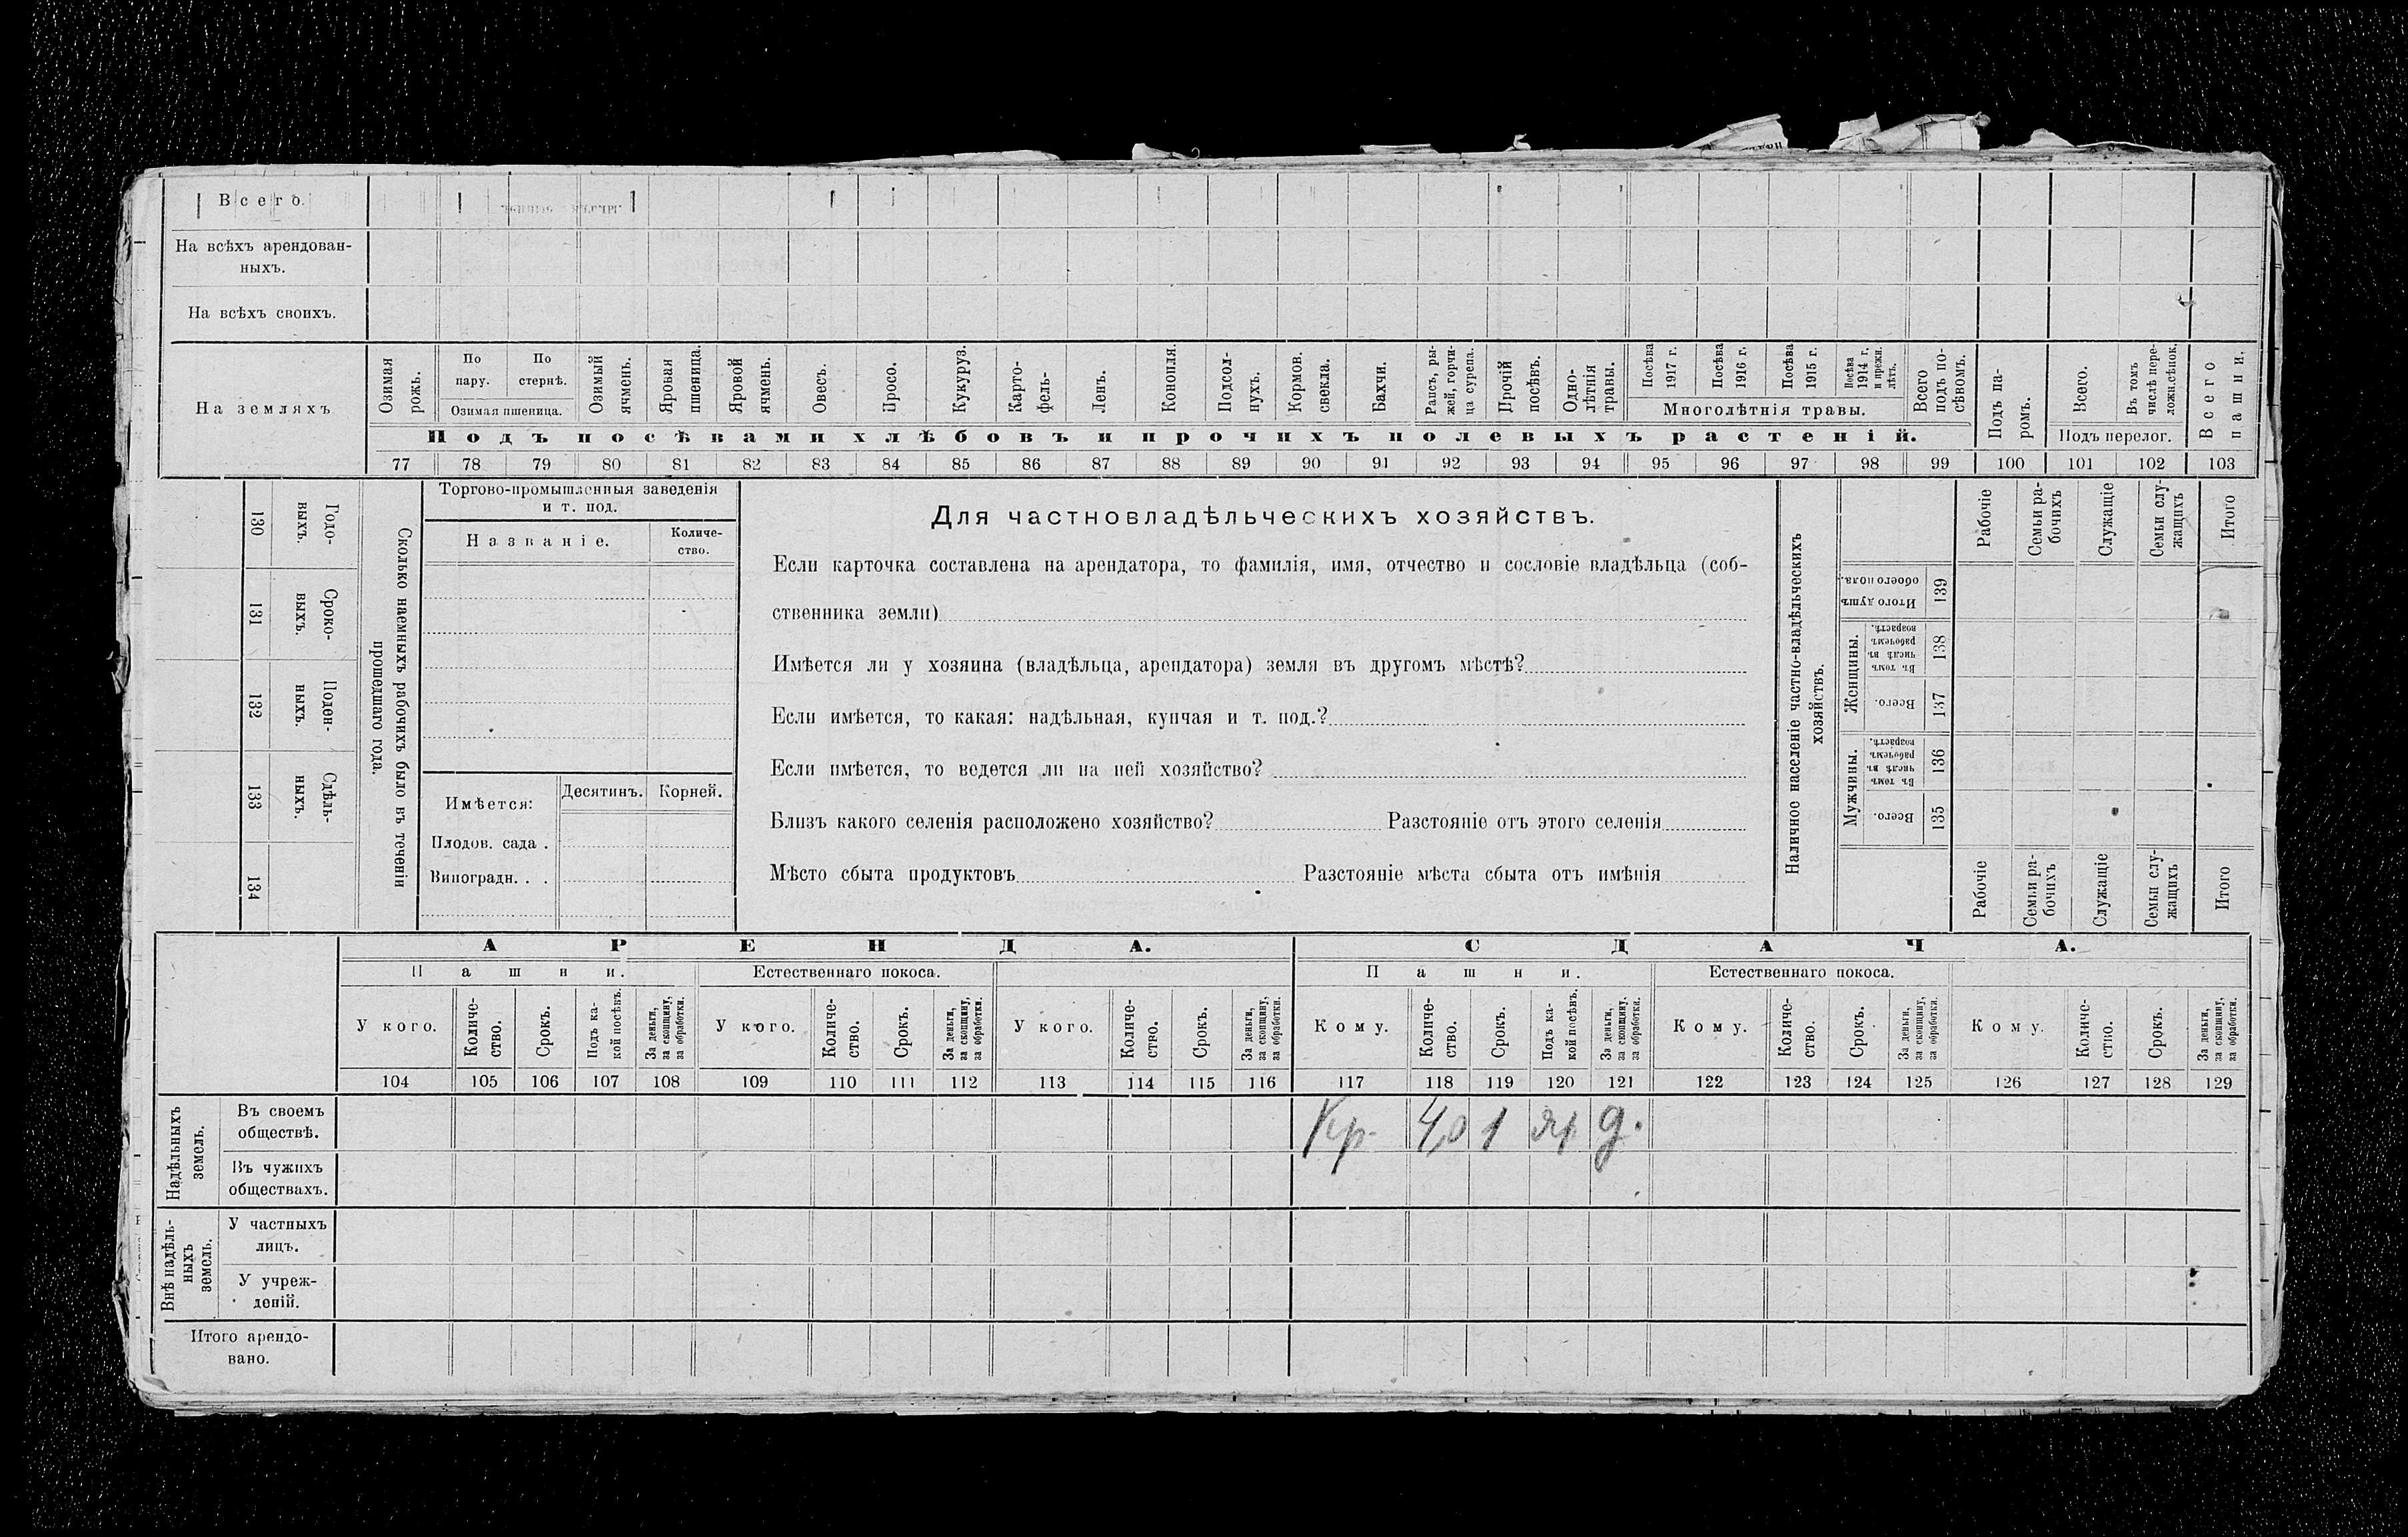 Всего.
На всѣхъ арендован-
ныхъ.
На всѣхъ своихъ.
На земляхъ
Озимая рожь.
По пару.
По стернѣ.
Озимая пшеница.
Озимый ячмень.
Яровая пшеница.
Яровой ячмень.
Овесъ.
Просо.
Кукуруз.
Карто-
фель-
Ленъ.
Конопля.
Подсол-
нухъ.
Кормов. свекла.
Бахчи.
Рапсъ, ры-
жей, горчи-
ца сурепа.
Прочій посѣвъ.
Одно-
лѣтнія травы.
Посѣва 1917 г.
Посѣва 1916 г.
Посѣва 1915 г.
Посѣва 1914 г. и прежн. лѣтъ.
Многолѣтнія травы.
Всего подъ по-
сѣвомъ.
Подъ па-
ромъ.
Всего.
Въ томъ числѣ пере-
лож.сѣнок.
Подъ перелог.
Всего пашни.
Подъ посѣвами хлѣбовъ и прочихъ полевыхъ растеній.
77 78 79 80 81 82 83 84 85 86 87 88 89 90 91 92 93 94 95 96 97 98 99 100 101 102 103
130 Годо-
выхъ.
131 Сроко-
выхъ.
132 Поден-
ныхъ.
133 Сдѣль-
ныхъ.
134
Сколько наемныхъ рабочихъ было въ теченіи
прошедшаго года.
Торгово-промышленныя заведенія
и т. под.
Названіе.
Количе-
ство.
Имѣется:
Десятинъ.
Корней.
Плодов. сада .
Виноградн. . .
Для частновладѣльческихъ хозяйствъ.
Если карточка составлена на арендатора, то фамилія, имя, отчество и сословіе владѣльца (соб-
ственника земли)
Имѣется ли у хозяина (владѣльца, арендатора) земля въ другомъ мѣстѣ?
Если имѣется, то какая: надѣльная, купчая и т. под.?
Если имѣется, то ведется ли на ней хозяйство?
Близъ какого селенія расположено хозяйство? Разстояніе отъ этого селенія
Мѣсто сбыта продуктовъ Разстояніе мѣста сбыта отъ имѣнія
Наличное населеніе частно-владѣльческихъ
хозяйствъ.
Рабочіе
Семьи ра-
бочихъ
Служащіе
Семьи слу-
жащихъ
Итого
Итого душъ обоего пола. 139
Женщины.
Въ томъ числѣ въ рабочемъ возрастѣ. 138
Всего. 137
Мужчины.
Въ томъ числѣ въ рабочемъ возрастѣ. 136
Всего. 135
Рабочіе
Семьи ра-
бочихъ
Служащіе
Семьи слу-
жащихъ
Итого
АРЕНДА.
СДАЧА.
Пашни.
Естественнаго покоса.
Пашни.
Естественнаго покоса.
У кого.
Количе-
ство.
Срокъ.
Подъ ка-
кой посѣвъ.
За деньги, за скопщину, за обработки.
У кого.
Количе-
ство.
Срокъ.
За деньги, за скопщину, за обработки.
У кого.
Количе-
ство.
Срокъ.
За деньги, за скопщину, за обработки.
Кому.
Количе-
ство.
Срокъ.
Подъ ка-
кой посѣвъ.
За деньги, за скопщину, за обработки.
Кому.
Количе-
ство.
Срокъ.
За деньги, за скопщину, за обработки.
Кому.
Количе-
ство.
Срокъ.
За деньги, за скопщину, за обработки.
104 105 106 107 108 109 110 111 112 113 114 115 116 117 118 119 120 121 122 123 124 125 126 127 128 129
Надѣльныхъ
земель.
Въ своемъ
обществѣ.
Кр. 4,0 1 яр д.
Въ чужихъ
обществахъ.
Внѣ надѣль-
ныхъ
земель.
У частныхъ
лицъ.
У учреж-
деній.
Итого арендо-
вано.